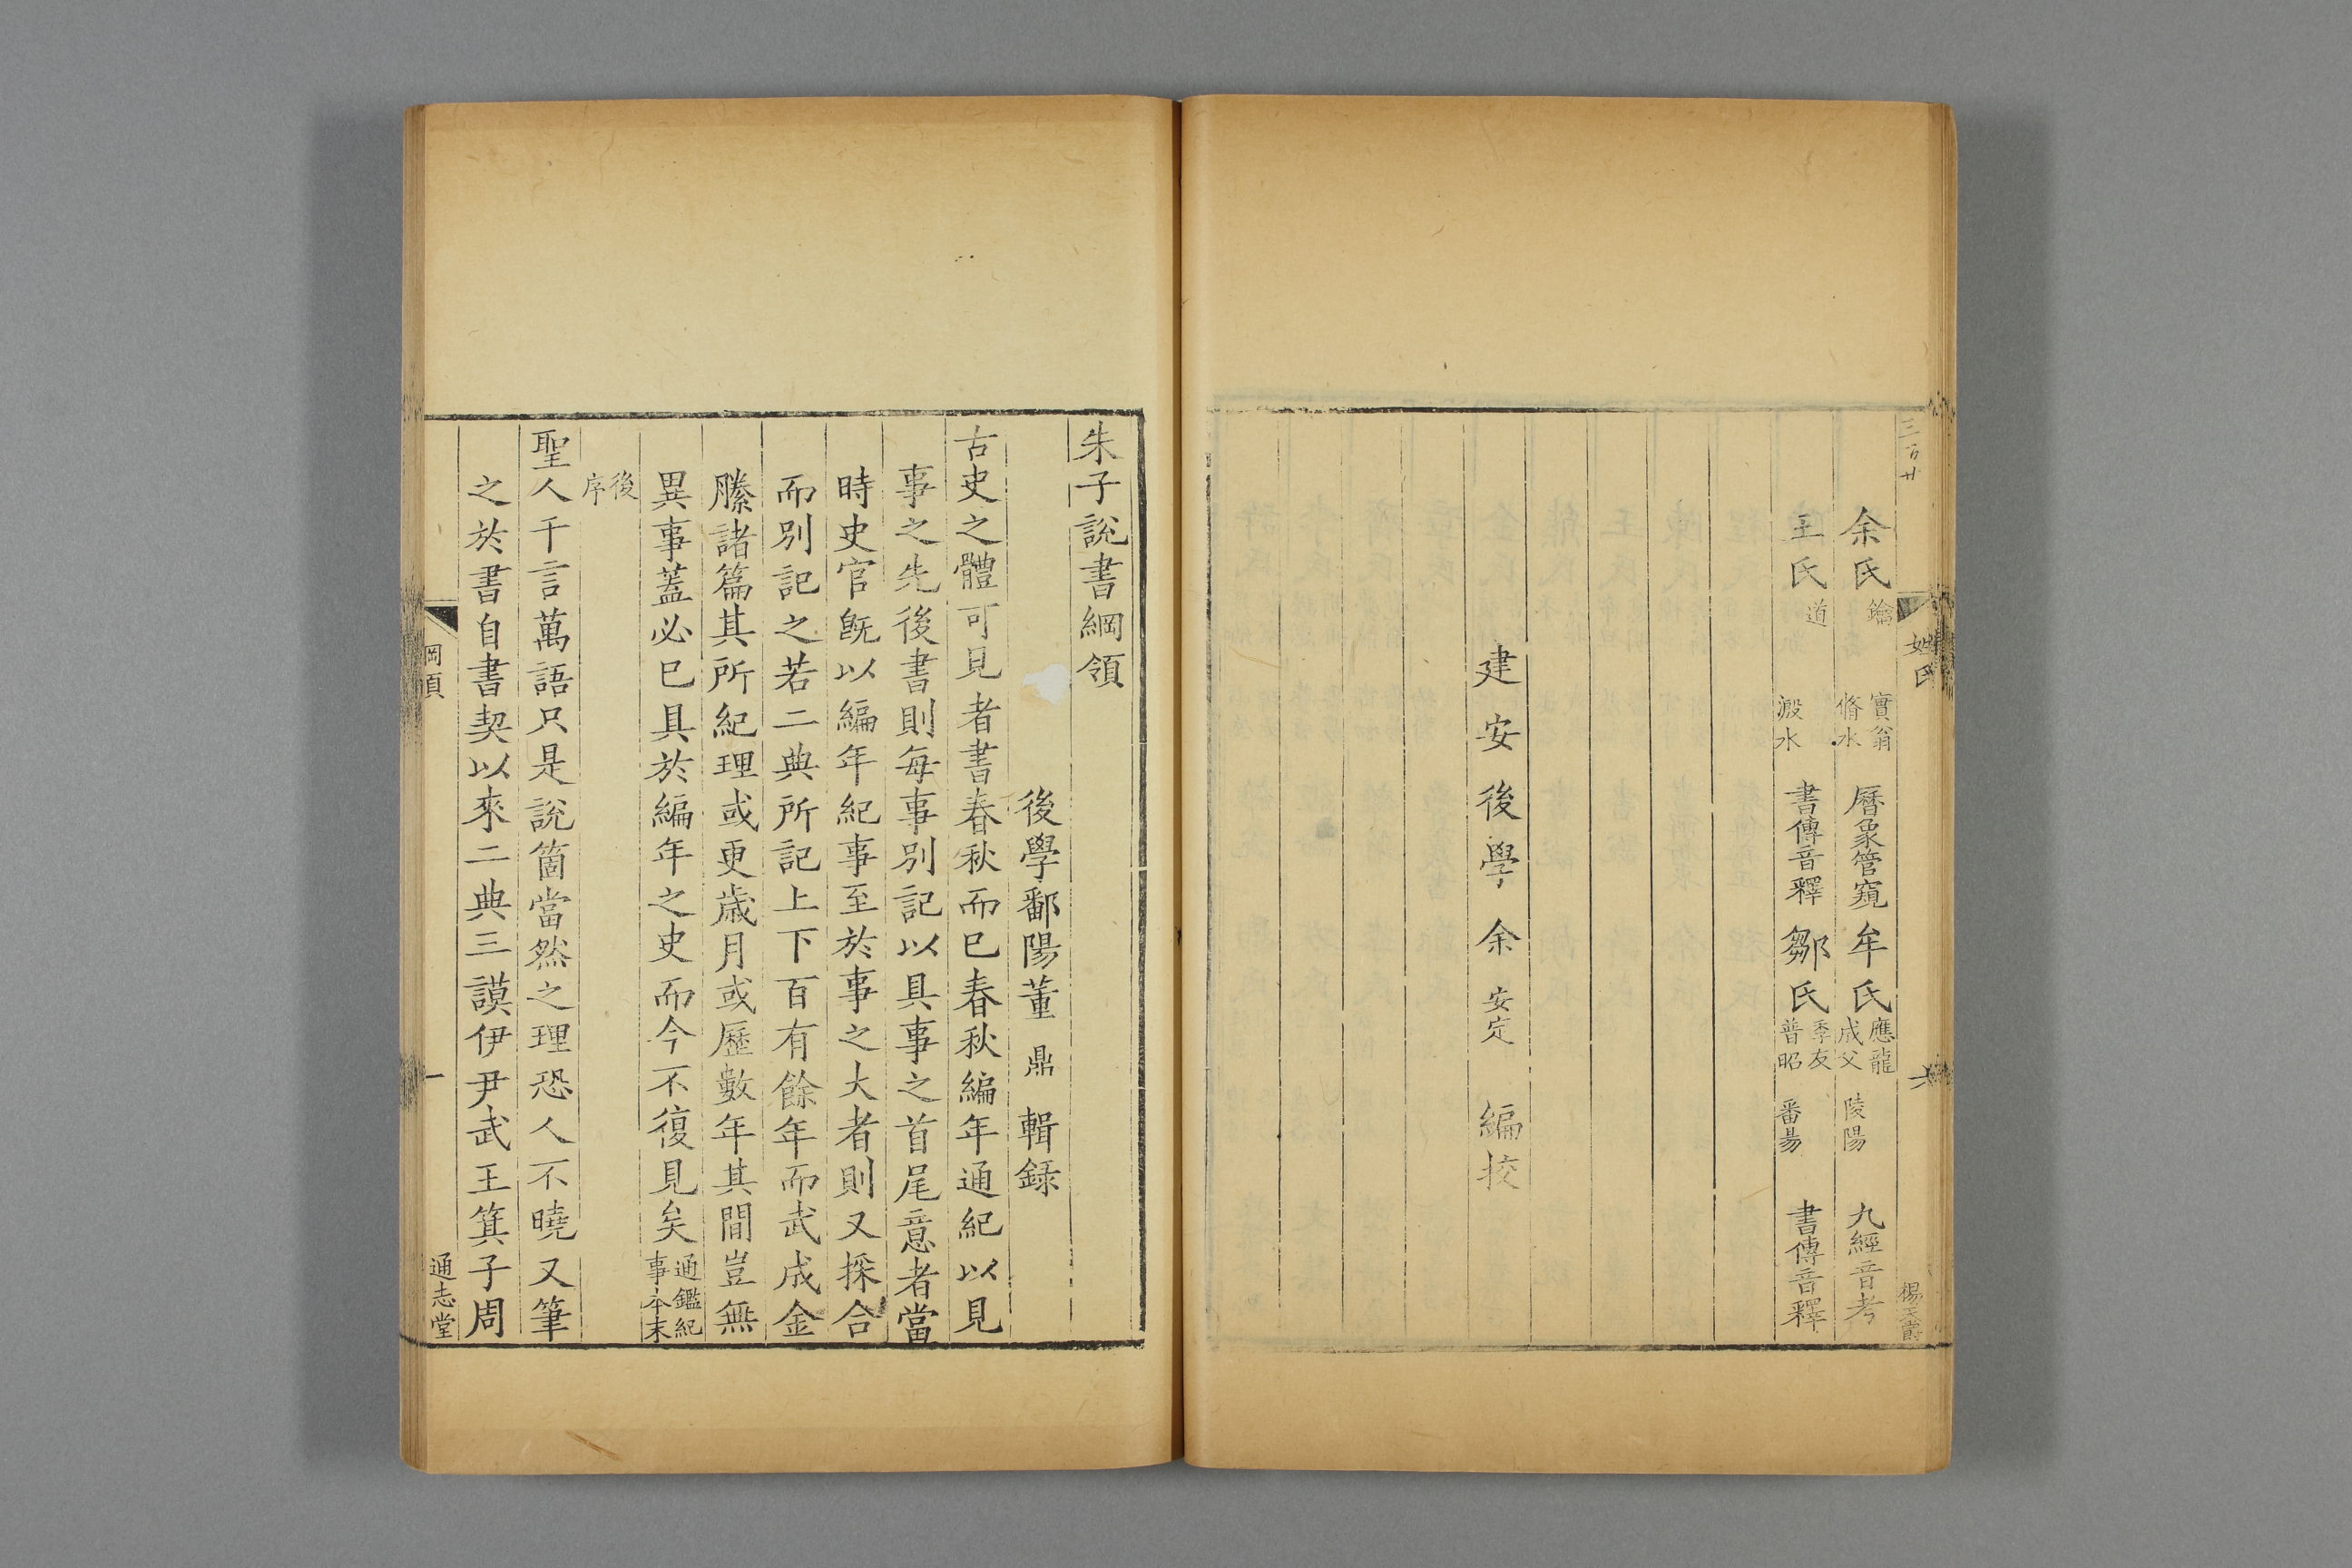 三百廿
姓氏
六
楊天爵
余氏 鑰 實翁 脩水 曆象管窺 牟氏 應龍 成父 陵陽 九經音考
王氏 道 溵水 書傳音釋 鄒氏 季友 普昭 番昜 書傳音釋
建安後學余安定編挍
朱子說書綱領
後學鄱陽董鼎輯録
古史之體可見者書春秋而已春秋編年通紀以見
事之先後書則每事別記以具事之首尾意者當
時史官旣以編年紀事至於事之大者則又採合
而別記之若二典所記上下百有餘年而武成金
縢諸篇其所紀理或更歳月或歷數年其間豈無
異事蓋必已具於編年之史而今不復見矣 通鑑紀 事本末
後 序
聖人千言萬語只是說箇當然之理恐人不曉又筆
之於書自書契以來二典三謨伊尹武王箕子周
綱領
一
通志堂